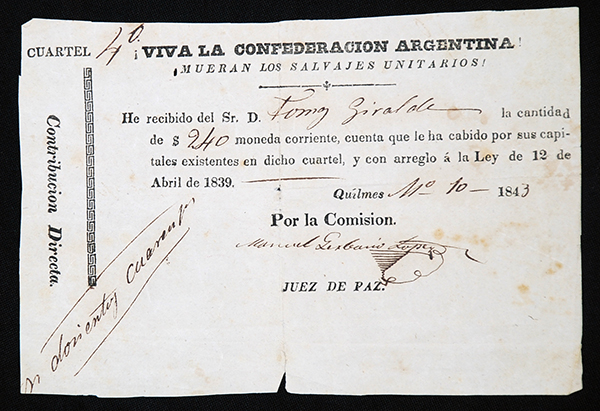 CUARTEL 4º.
¡VIVA LA CONFEDERACION ARGENTINA!
¡MUERAN LOS SALVAJES UNITARIOS!
He recibido del Sr. D. Tomas Giralde la cantidad
de $ 240 moneda corriente, cuenta que le ha cabido por sus capi-
tales existentes en dicho cuartel, y con arreglo á la Ley de 12 de
Abril de 1839.
Quilmes Mº 10 1843
Por la Comision.
Manuel
JUEZ DE PAZ.
Contribucion Directa.
dosientos cuarenta